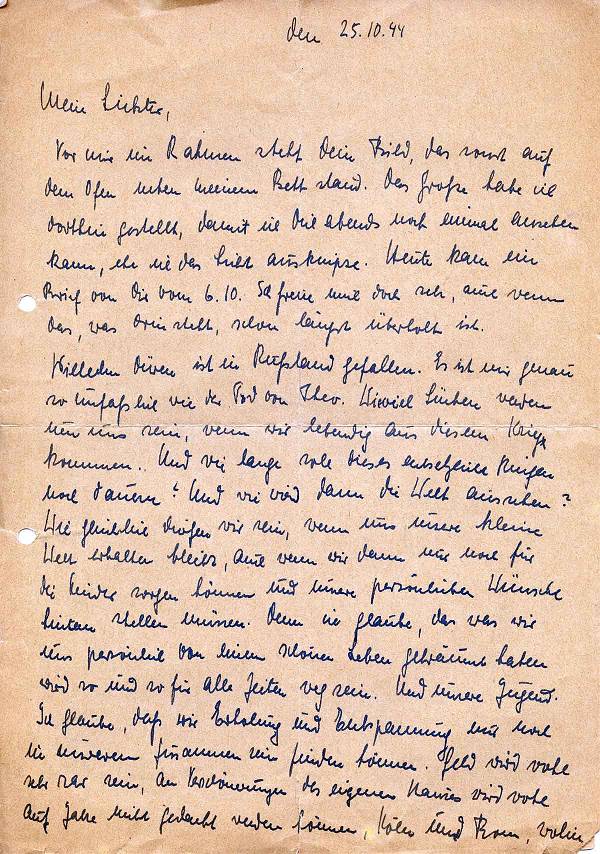 den 25.10.44
Mein Lieber,
Vor mir im Rahmen steht Dein Bild, das sonst auf
dem Ofen neben meinem Bett stand. Das Große habe ich
dorthin gestellt, damit ich Die abends noch einmal ansehen
kann, ehe ich das Licht ausknipse. Heute kam ein
Brief von Dir vom 6.10. Ich freue mich doch sehr, auch wenn
das, was drin steht, schon längst überholt ist.
ist in Rußland gefallen. Es ist mir genau
so unfaßlich wie der Tod von Theo. Wieviel Lücken werden
um uns sein, wenn wir lebendig aus diesem Krieg
kommen.. Und wie lange soll dieses entsetzliche Ringen
noch dauern? Und wie wird dann die Welt aussehen?
Wie glücklich dürfen wir sein, wenn uns unsere kleine
Welt erhalten bleibt, auch wenn wir dann nur noch für
die Kinder sorgen können und unsere persönlichen Wünsche
hintan stellen müssen. Denn ich glaube, das was wir
uns persönlich von einem schönen Leben geträumt haben
wird so und so für alle Zeiten weg sein. Und unsere Jugend.
Ich glaube, daß wir Erholung und Entspannung nur noch
in unserem Zusammensein finden können. Geld wird wohl
sehr rar sein, an Verschönerungen des eigenen Hauses wird wohl
auf Jahre nicht gedacht werden können, Köln und Bonn, wohin